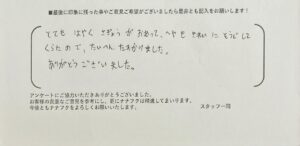 ■最後に印象に残った事やご意見ご希望がございましたら是非とも記入をお願いします!
とても はやく さぎょう が おわって、へやも きれい に そうじして
くらたので、たいへん たすかりました。
ありがとうございました。
アンケートにご協力いただきありがとうございました。
お客様の貴重なご意見を参考にし、更にナナフクは精進してまいります。
今後ともナナフクをよろしくお願いいたします。
スタッフ一同